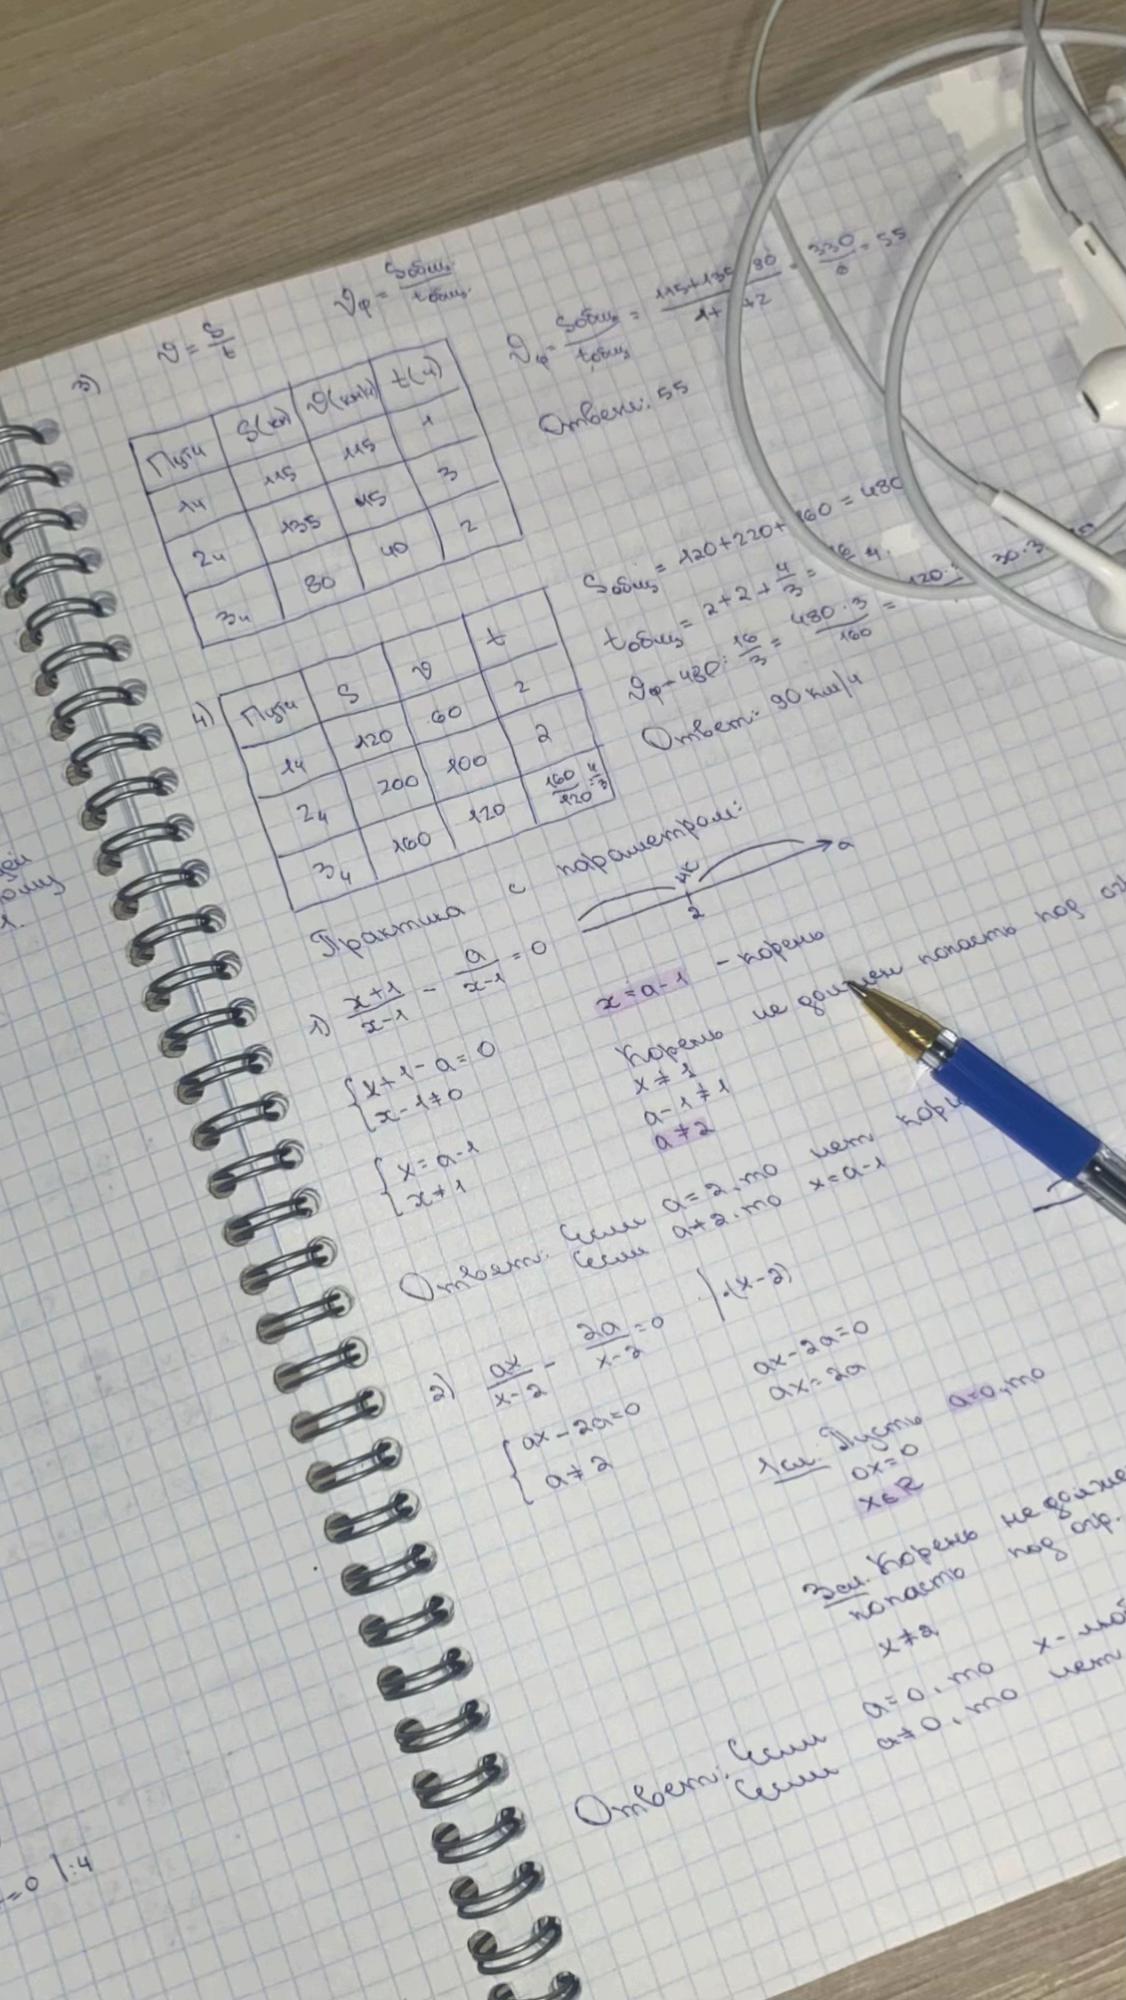 3)
υ = S/t
υф = Sобщ./tобщ.
Пути S(км) υ(км/ч) t(ч)
1ч 115 115 1
2ч 135 45 3
3ч 80 40 2
υф = Sобщ/tобщ = 115+135 80/1+ +2 = 330/6 = 55
Ответ: 55
4)
Пути S υ t
1ч 120 60 2
2ч 200 100 2
3ч 160 120 160/120 = 4/3
Sобщ = 120+220+160 = 480
tобщ = 2+2+4/3 = 16 ч.
υф = 480 : 16/3 = 480·3/160 = 30·3
Ответ: 90 км/ч
Практика с параметром:
1) x+1/x-1 - a/x-1 = 0
2 a
{ x+1-a=0
x-1≠0
{ x=a-1
x≠1
x=a-1 - корень
Корень не должен попасть под
x≠1
a-1≠1
a≠2
Ответ: Если a=2, то нет
Если a≠2, то x=a-1
2) ax/x-2 - 2a/x-2 = 0 |·(x-2)
{ ax-2a=0
a≠2
ax-2a=0
ax=2a
1сл. Пусть a=0, то
0x=0
x∈R
3сл. Корень не
попасть под огр.
x≠2
Ответ: Если a=0, то x-
Если a≠0, то нет
=0 |:4